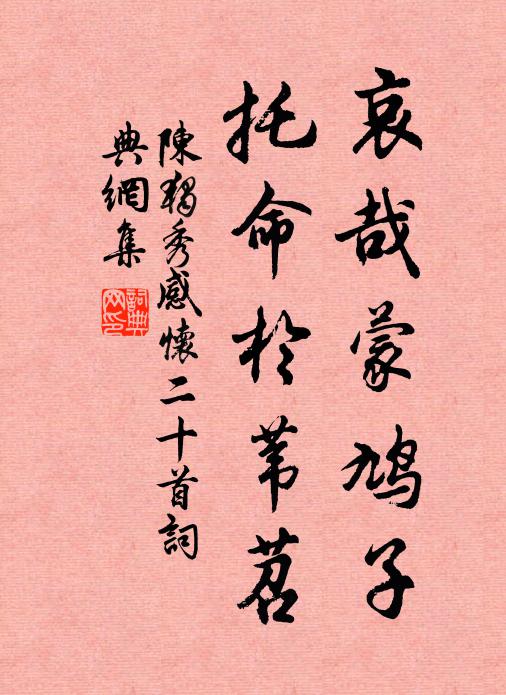 哀哉蒙鸠子
托命於苇苕
陳獨秀感懷二十首詞
典網集
詞典网印